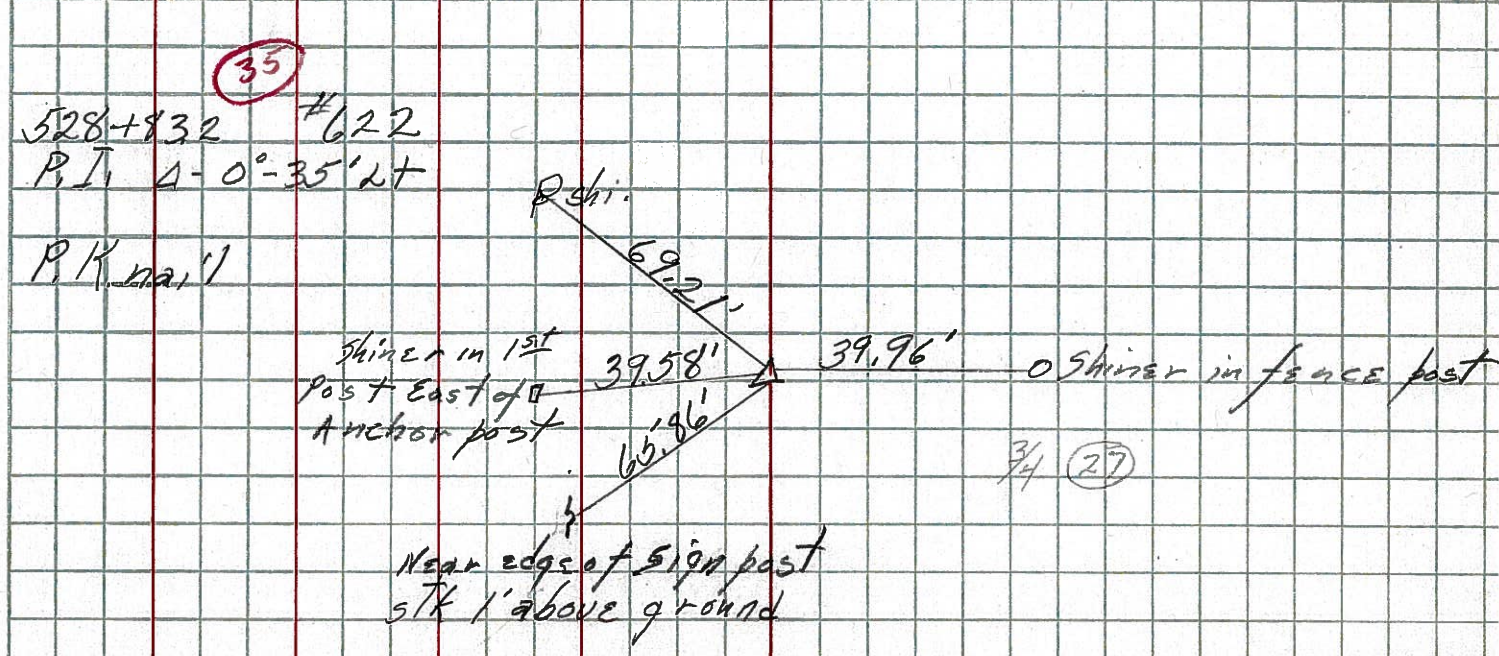 35
528+832 #622
P.I. Δ- 0°-35' Lt
P.K. nail
shi.
69.21'
Shiner in 1st
Post East of
Anchor post
39.58'
39.96'
Shiner in fence post
65.86'
3/4 27
Near edge of Sign post
stk 1' above ground